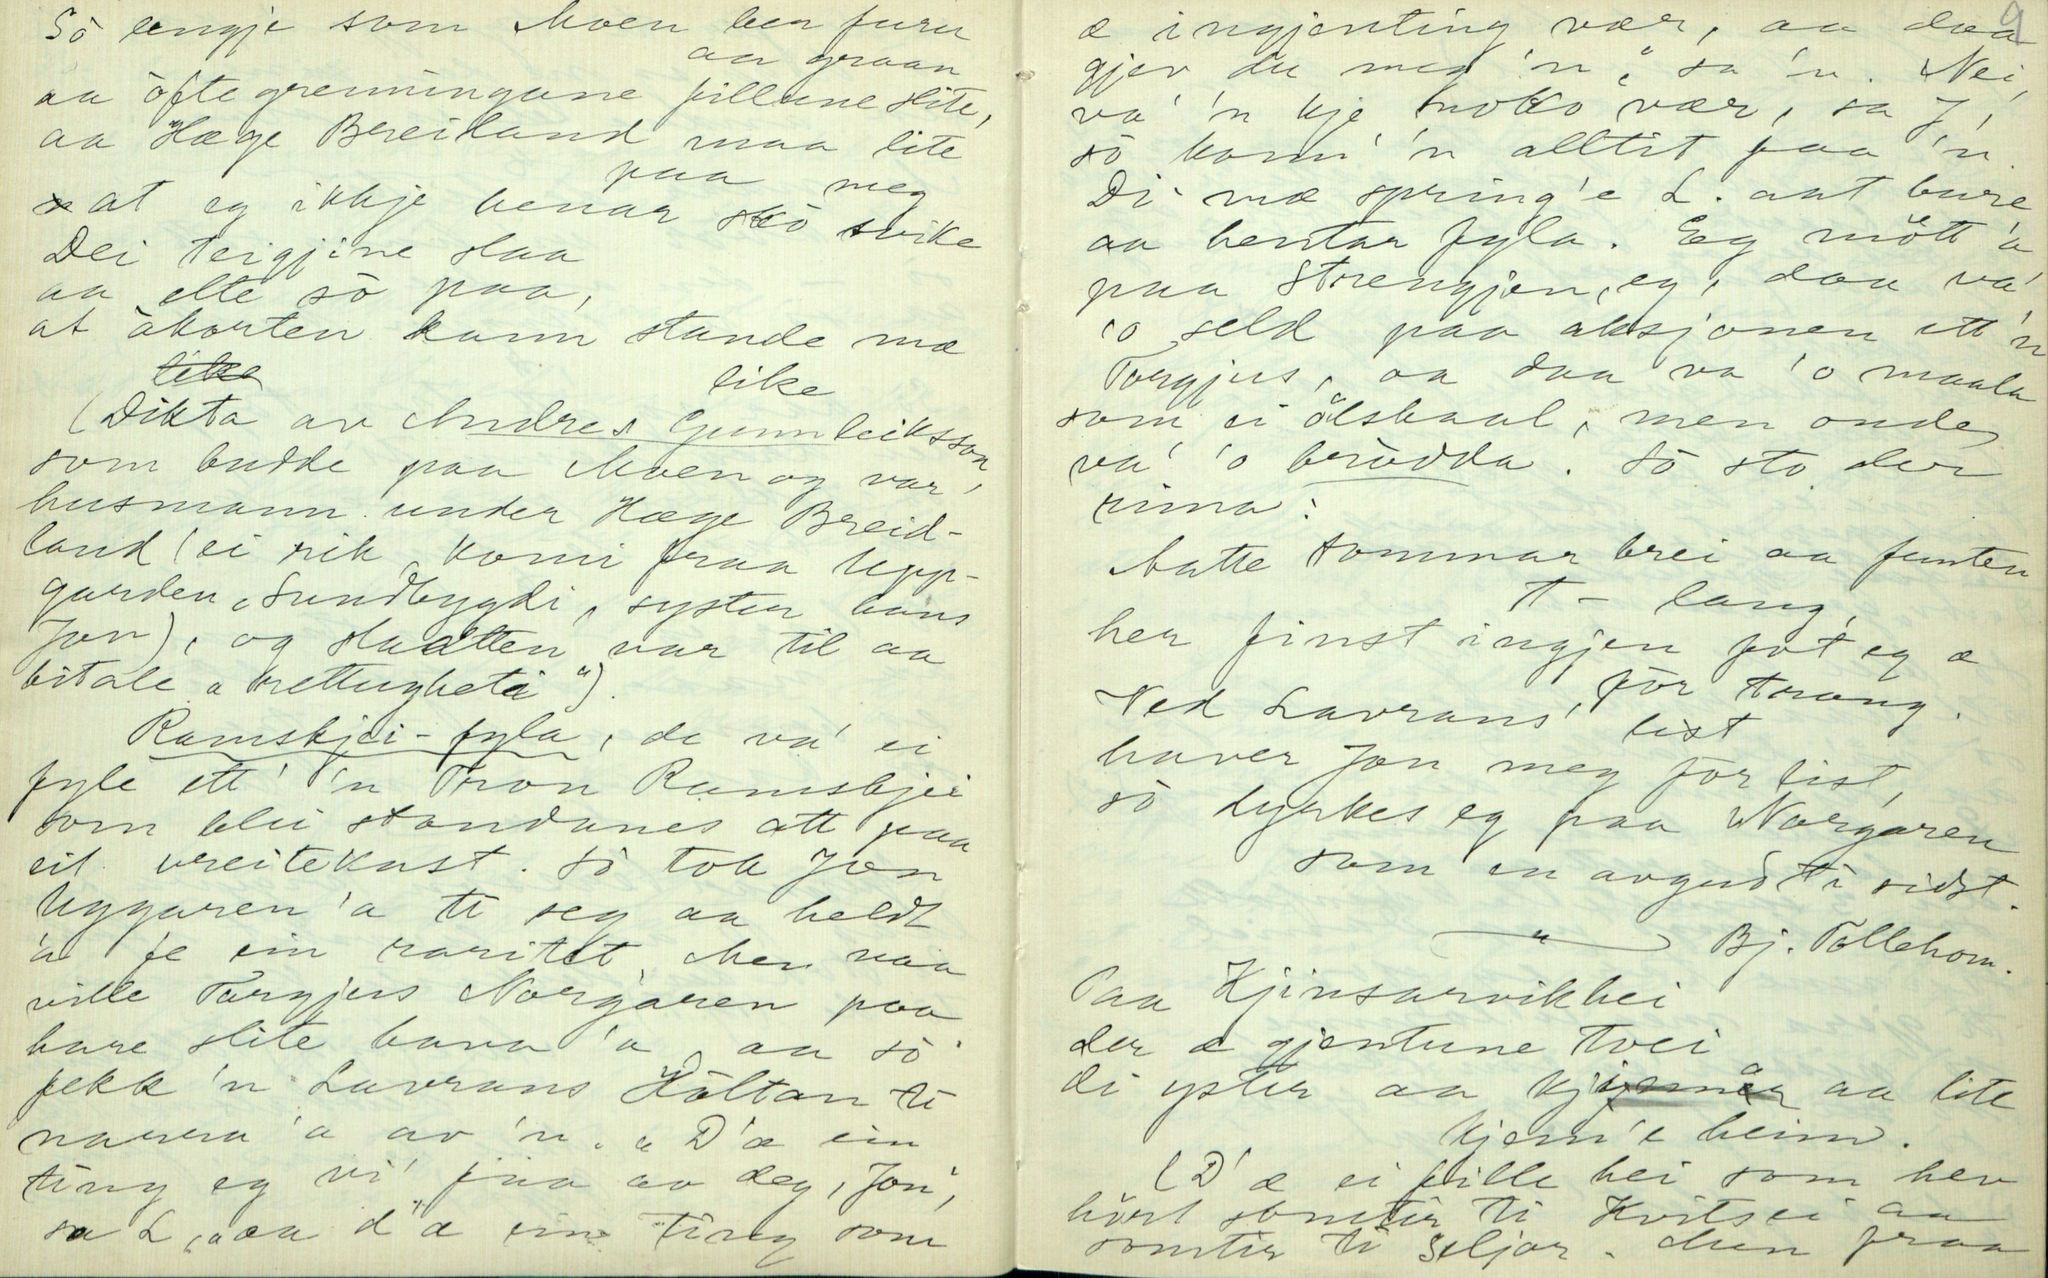 Sò lengje som Moen ber furu
aa graan
aa òfte grenningane fillune slite,
aa Hæge Breiland maa lite
paa meg
at eg ikkje henar skò svike
Dei teigjine slaa
aa elte sò paa,
at àkorten kann stande mæ
like
(Dikta av Andres Gunnleiksson,
som budde paa Moen og var
husmann under Hæge Breid-
land (ei rik, komi fraa Upp-
garden, Sundbygdi, syster hans
Jon), og slaatten var til aa
bitale "rettugheti").
Ramskjei-fyla, de va' ei
fyle ett' 'n Tron Ramskjei
som blei standanes att paa
eit vreitekast. Sò tok Jon
Uggaren 'a ti seg aa heldt
'a fe ein raritet. Men naa
ville Targjus Norgaren paa
bare slite hava 'a, aa sò
fekk 'n Lavrans Hòltan ti
narra 'a av 'n. "D'æ ein
ting eg vi' faa av deg, Jon",
sa L, "aa d'æ ein ting som
9
æ ingjenting vær, aa daa
gjev du meg 'n", sa 'n. Nei,
va' 'n kje noko vær, sa J,
sò kom' 'n alltit paa 'n.
Di mæ spring'e L. aat bure
aa hentar fyla. Eg mòtt 'a
paa Strengjen, eg, daa va'
'o seld paa aksjonen ett 'n
Torgjus, aa daa va 'o maala
som ei ölskaal, men onde
va' 'o bròdda. Sò sto der
rima:
Natte sommar brei aa femten
T- lang,
her finst ingjen fot eg æ
fòr trong.
Ved Lavrans' list
haver Jon meg forlist,
sò dyrkes eg paa Norgaren
som en avgud ti sidst.
Bj. Tollehom.
Paa Kjinsarvikhei
der æ gjentune tvei
di yster aa kjinnar aa lite
kjem'e heim.
(D'æ ei fille hei som hev
hört somtir ti Kvitsei aa
somtir ti Seljor. Men fraa